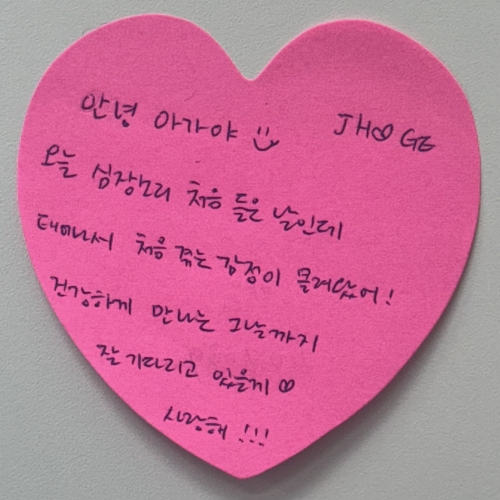 안녕 아가야 JH♡GE
오늘 심장소리 처음 들은 날인데
태어나서 처음 겪는 감정이 몰려왔어!
건강하게 만나는 그날까지
잘 기다리고 있을게 ♡
사랑해 !!!